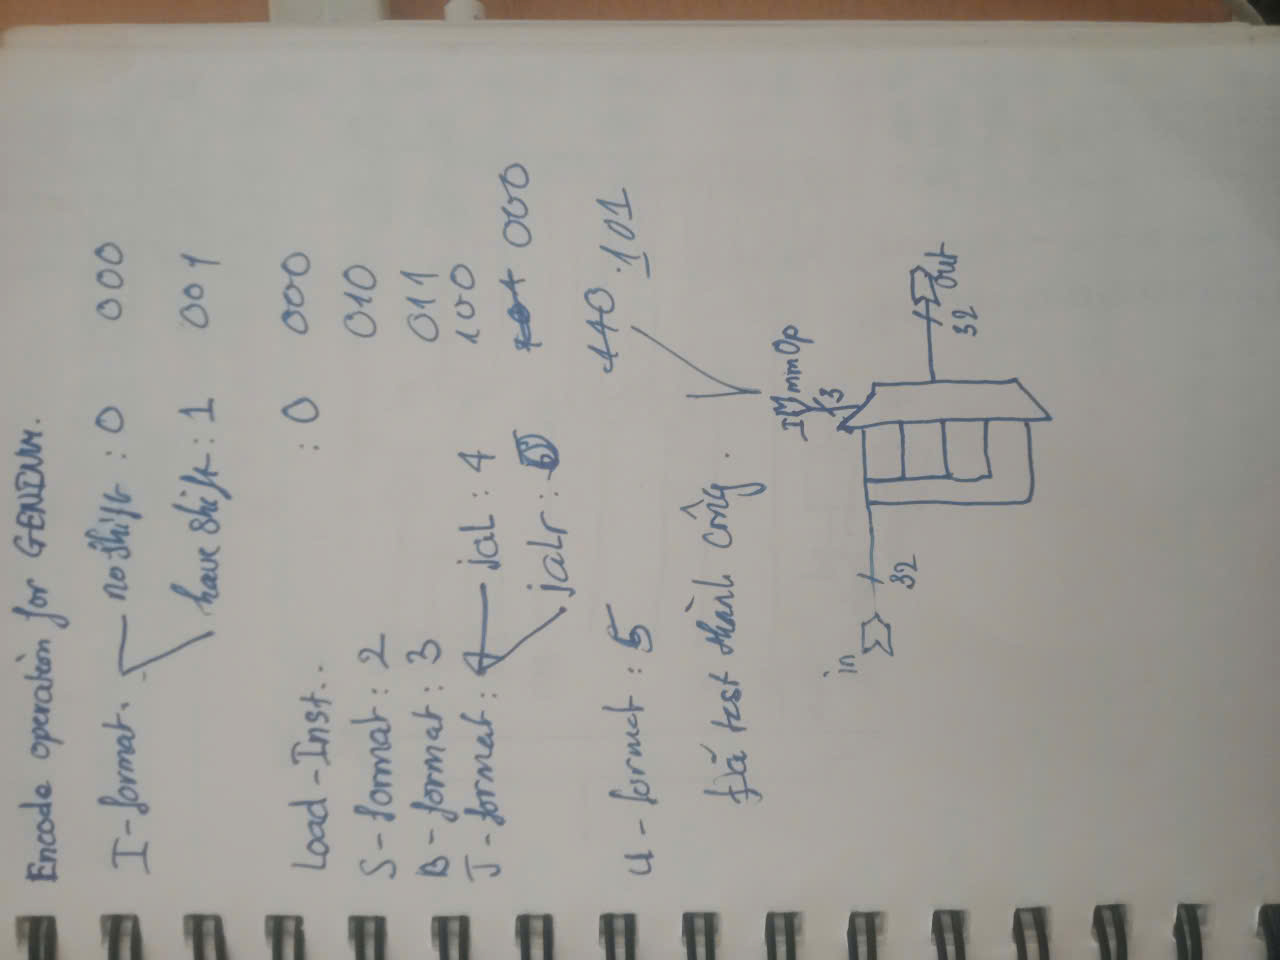 Encode operation for GENIMM.
I-format. no shift : 0 000
have shift : 1 001
Load-Inst.. : 0 000
S-format : 2 010
B-format : 3 011
J-format : jal : 4 100
jalr : 000
U-format : 5 110 . 101
Đã test thành công .
ImmOp
3
in
32
32
out